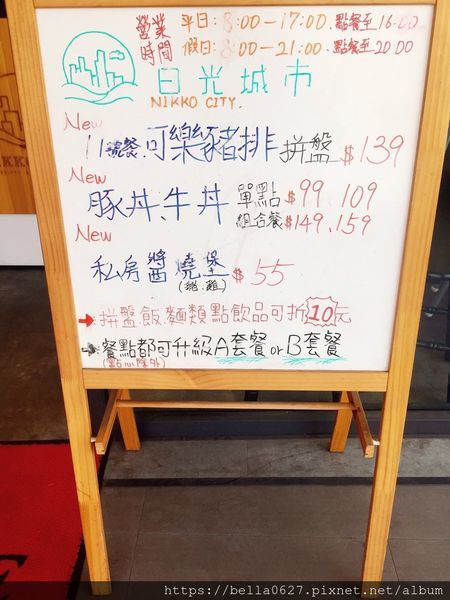 營業時間
平日:8:00-17:00、點餐至16:00
假日:8:00-21:00、點餐至20:00
日光城市
NIKKO CITY.
New
11號餐.可樂豬排 拼盤 $139
New
豚丼、牛丼 單點 $99 109
組合餐 $149、159
New
私房醬燒堡 $55
(豬.雞)
拼盤.飯.麵類點飲品可折10元
餐點都可升級A套餐orB套餐
(點心除外)
https://bella0627.pixnet.net/album